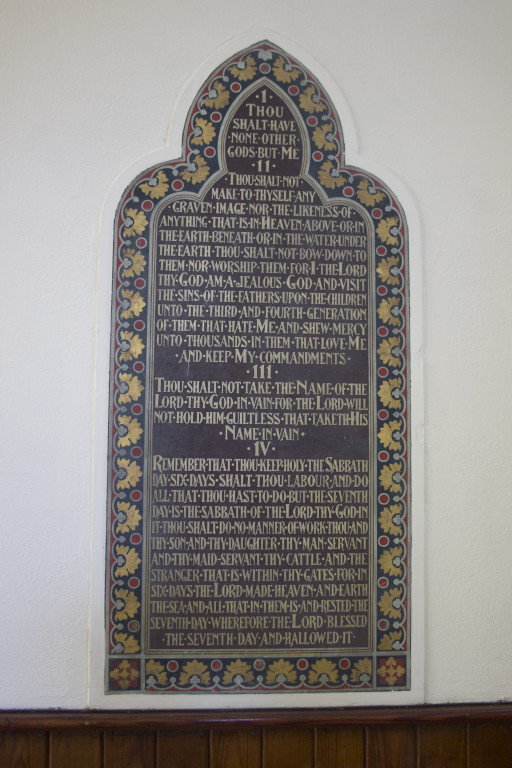 ·I·
THOU
SHALT·HAVE
·NONE·OTHER·
GODS·BUT·ME
·II·
·THOU·SHALT·NOT·
MAKE·TO·THYSELF·ANY
·GRAVEN·IMAGE·NOR·THE·LIKENESS·OF·
ANYTHING·THAT·IS·IN·HEAVEN·ABOVE·OR·IN
THE·EARTH·BENEATH·OR·IN·THE·WATER·UNDER
THE·EARTH·THOU·SHALT·NOT·BOW·DOWN·TO
THEM·NOR·WORSHIP·THEM·FOR·I·THE·LORD
THY·GOD·AM·A·JEALOUS·GOD·AND·VISIT
THE·SINS·OF·THE·FATHERS·UPON·THE·CHILDREN
UNTO·THE·THIRD·AND·FOURTH·GENERATION
OF·THEM·THAT·HATE·ME·AND·SHEW·MERCY
UNTO·THOUSANDS·IN·THEM·THAT·LOVE·ME
·AND·KEEP·MY·COMMANDMENTS·
·III·
THOU·SHALT·NOT·TAKE·THE·NAME·OF·THE
LORD·THY·GOD·IN·VAIN·FOR·THE·LORD·WILL
NOT·HOLD·HIM·GUILTLESS·THAT·TAKETH·HIS
·NAME·IN·VAIN·
·IV·
REMEMBER·THAT·THOU·KEEP·HOLY·THE·SABBATH
DAY·SIX·DAYS·SHALT·THOU·LABOUR·AND·DO
ALL·THAT·THOU·HAST·TO·DO·BUT·THE·SEVENTH
DAY·IS·THE·SABBATH·OF·THE·LORD·THY·GOD·IN
IT·THOU·SHALT·DO·NO·MANNER·OF·WORK·THOU·AND
THY·SON·AND·THY·DAUGHTER·THY·MAN·SERVANT
AND·THY·MAID·SERVANT·THY·CATTLE·AND·THE
STRANGER·THAT·IS·WITHIN·THY·GATES·FOR·IN
SIX·DAYS·THE·LORD·MADE·HEAVEN·AND·EARTH
THE·SEA·AND·ALL·THAT·IN·THEM·IS·AND·RESTED·THE
SEVENTH·DAY·WHEREFORE·THE·LORD·BLESSED
·THE·SEVENTH·DAY·AND·HALLOWED·IT·